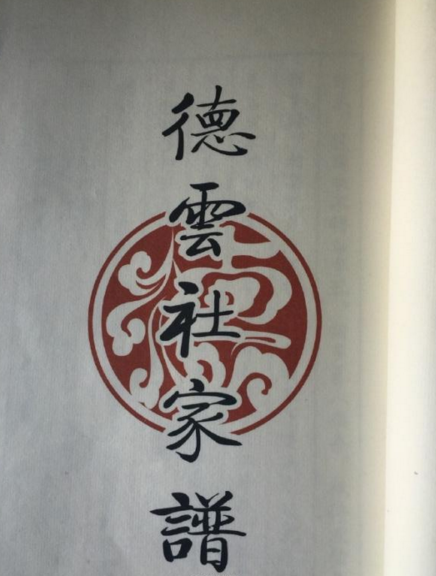 德雲社家譜